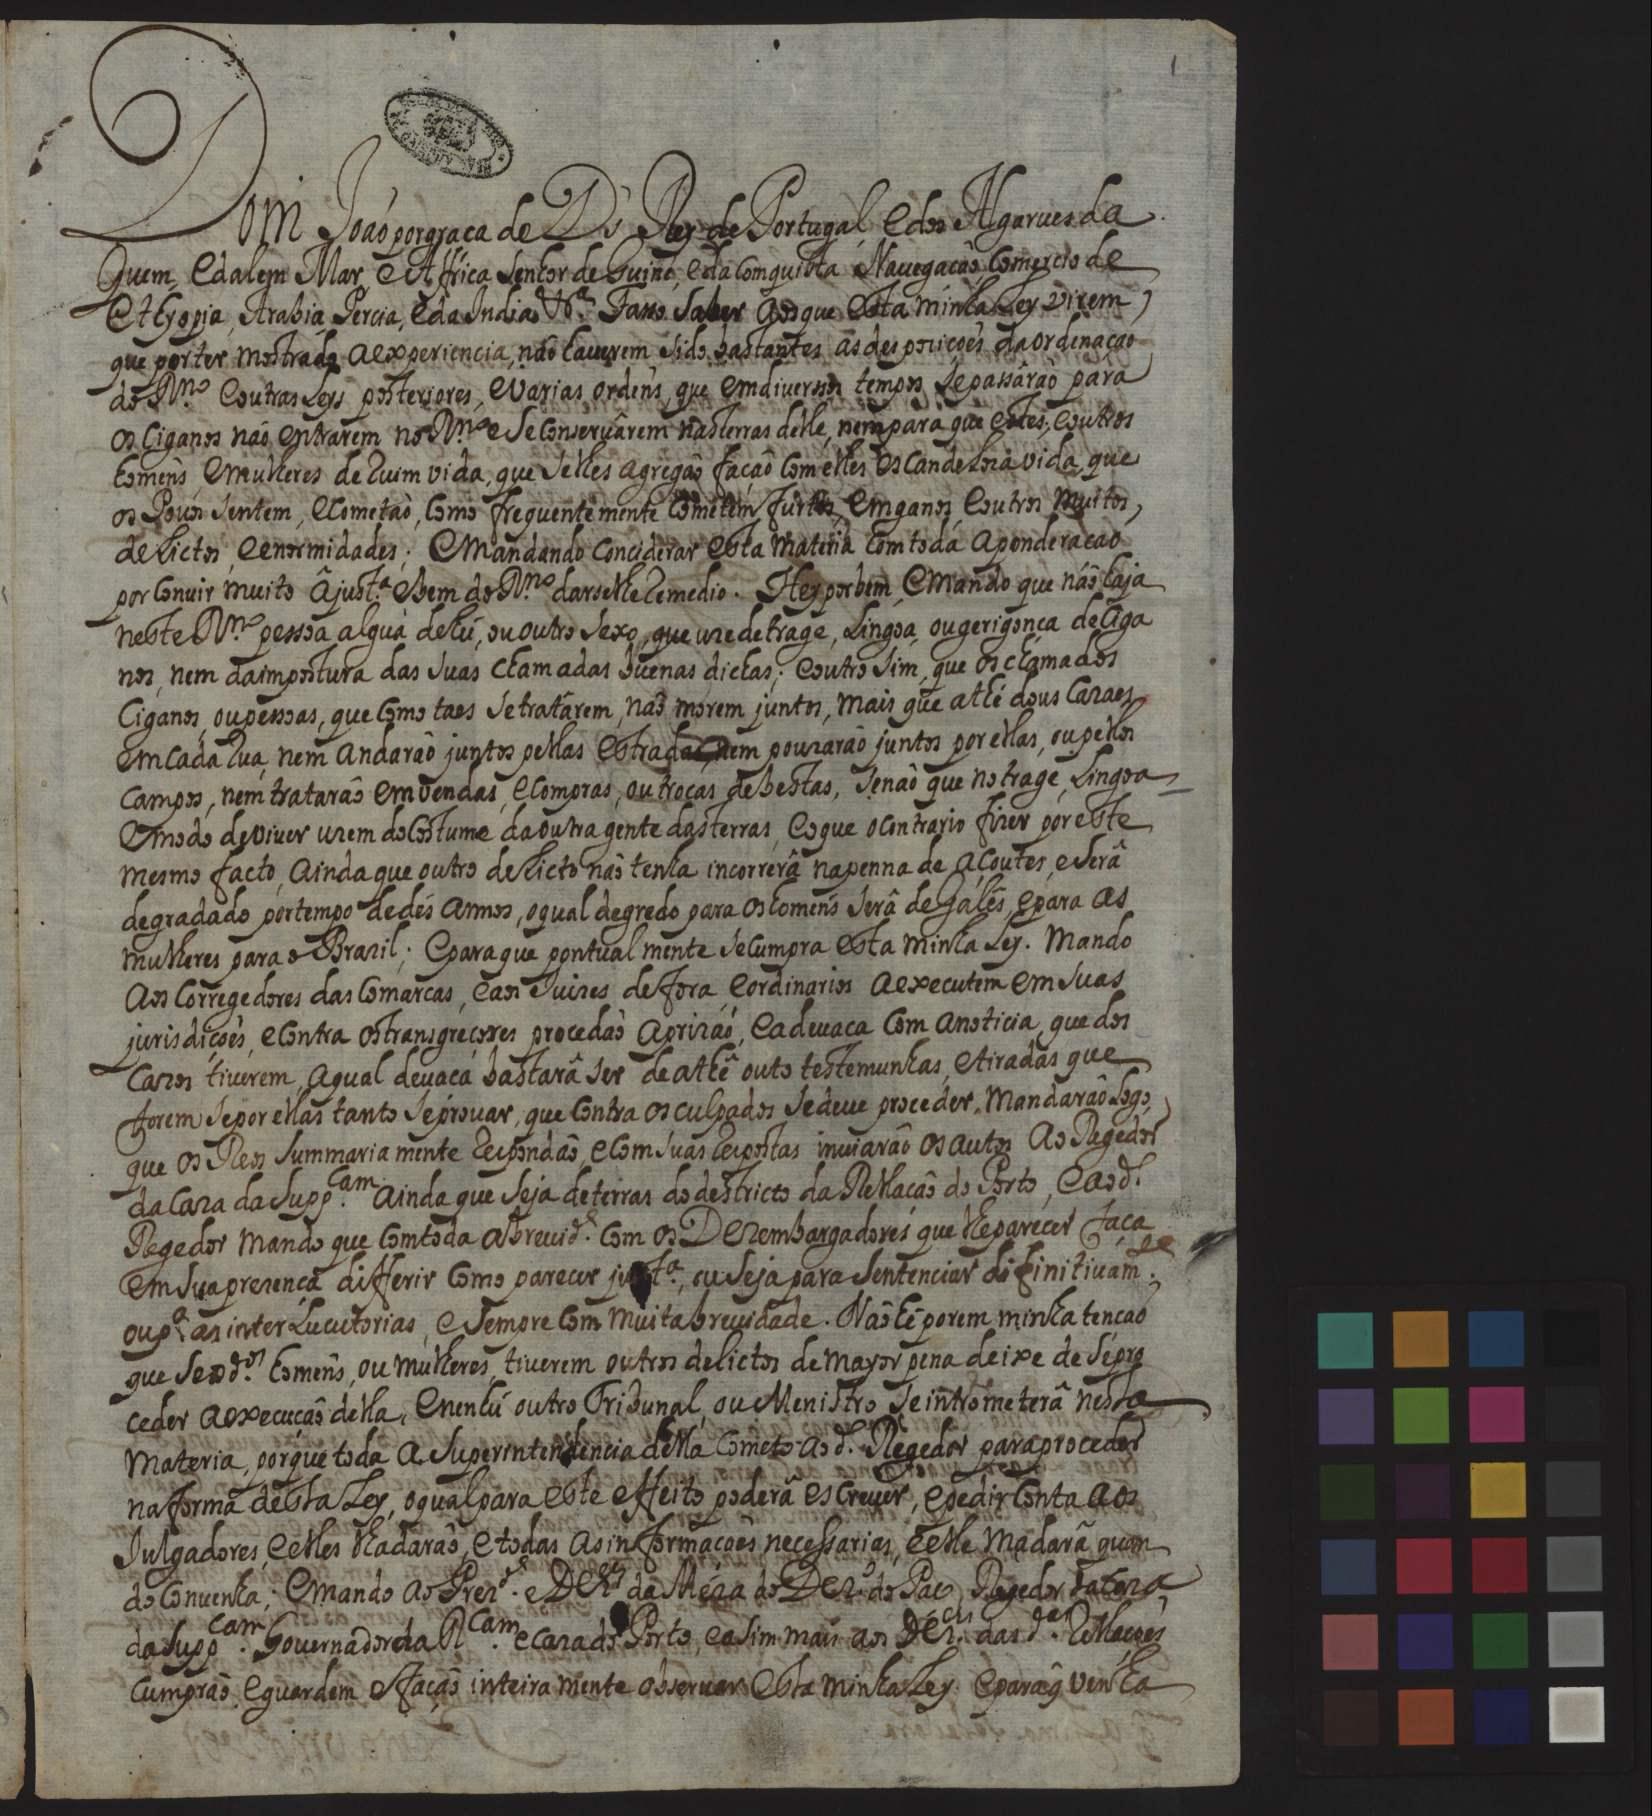 1
Dom João por graça de Ds Rey de Portugal, e dos Algarues da
quem, e dalem Mar, e Affrica Senhor de Guine, e da Comquista Nauegacão Comercio de
Ethyopia, Arabia Percia, e da India &ª. Faso saber aos que esta minha Ley virem,
que por ter mostrado a experiencia, não hauerem sido bastantes as desposicoẽs da ordenação
do Rno. e outras Leys posteriores, e varias ordeñs, que em diversos tempos se passárão para
os Ciganos não entrarem no Rno. e se Conseruârem nas terras delle, nem para que estes, e outros
homeñs, e mulheres de Ruim vida, que se lhes agregão fação Com elles escandeloza vida, que
os Pouos sentem, e Cometão, Como frequente mente Cometem furtos, emganos, e outros muitos,
delictos, e enormidades; e mandando Conciderar esta materia Com toda a ponderacao
por Conuir muito â justª. e bem do Rno. darselhe Remedio. Hey por bem, e mando que não haja
neste Rno. pessoa algũa de hũ, ou outro sexo, que uze de trage, Lingoa, ou gerigonça de Ciga
nos, nem da impostura das suas chamadas buenas dichas; e outro sim, que os chamados
Ciganos, ou pessoas, que Como taes se tratárem, não morem juntos, mais que athé dous Cazaes
em Cada Rua, nem andarão juntos pellas estradas, nem pouzarão juntos por ellas, ou pellos
Campos, nem tratarão em vendas, e Compras, ou trocas de bestas, senão que no trage, Lingoa
e modo de viver uzem do Costume da outra gente das terras, e o que o contrario fizer por este
mesmo facto, ainda que outro delicto não tenha incorrerâ na penna de açoutes, e serâ
degradado por tempo de dés annos, o qual degredo para os homeñs serâ de Galés, e para as
mulheres para o Brazil; e para que pontual mente se Cumpra esta minha Ley. Mando
aos Corregedores das Comarcas, e aos Juizes de fora, e ordinarios a executem em suas
jurisdiçoẽs, e Contra os transgreçores procedão a prizaó, e a deuaca Com a noticia, que dos
Cazos tiverem, a qual deuaca bastarâ ser de athê outo testemunhas, e tiradas que
forem se por ellas tanto se prouar, que Contra os culpados se deue proceder, Mandarão Logo,
que os Reos summaria mente Respondaõ, e Com suas Repostas inuiarão os autos ao Regedor
da Caza da Suppcam. ainda que seja de terras do destricto da Rellacão do Porto, e ao d.
Regedor mando que Com toda a breuide. Com os Dezembargadores que lhe parecer faça
em sua prezença differir Como parecer justª., ou seja para sentenciar difinitiuamte.
ou pª. as inter Lucutorias, e sempre Com muita breuidade. Não hé porem minha tencao
que se os ds. homeñs, ou mulheres, tiuerem outros delictos de mayor pena deixe de se pro
ceder a execução della, e nenhũ outro Tribunal, ou Menistro se intrometerâ nesta
materia, porque toda a superintendencia della Cometo ao d. Regedor para proceder
na forma desta Ley, o qual para este effeito poderâ escrever, e pedir Conta aos
Julgadores, e elles lha darão, e todas as informacoẽs necessarias, e elle ma darâ quan
do Convenha; e mando ao Prezte. e Dezres. da Méza do Dezo. do Paço, Regedor da Caza
da Suppcam. Governador da Rcam. e Caza do Porto, e asim mais aos Dezres. das das. Rellacoẽs
Cumprão, e guardem, e fação inteira mente observar esta minha Ley. e para q̃ venha